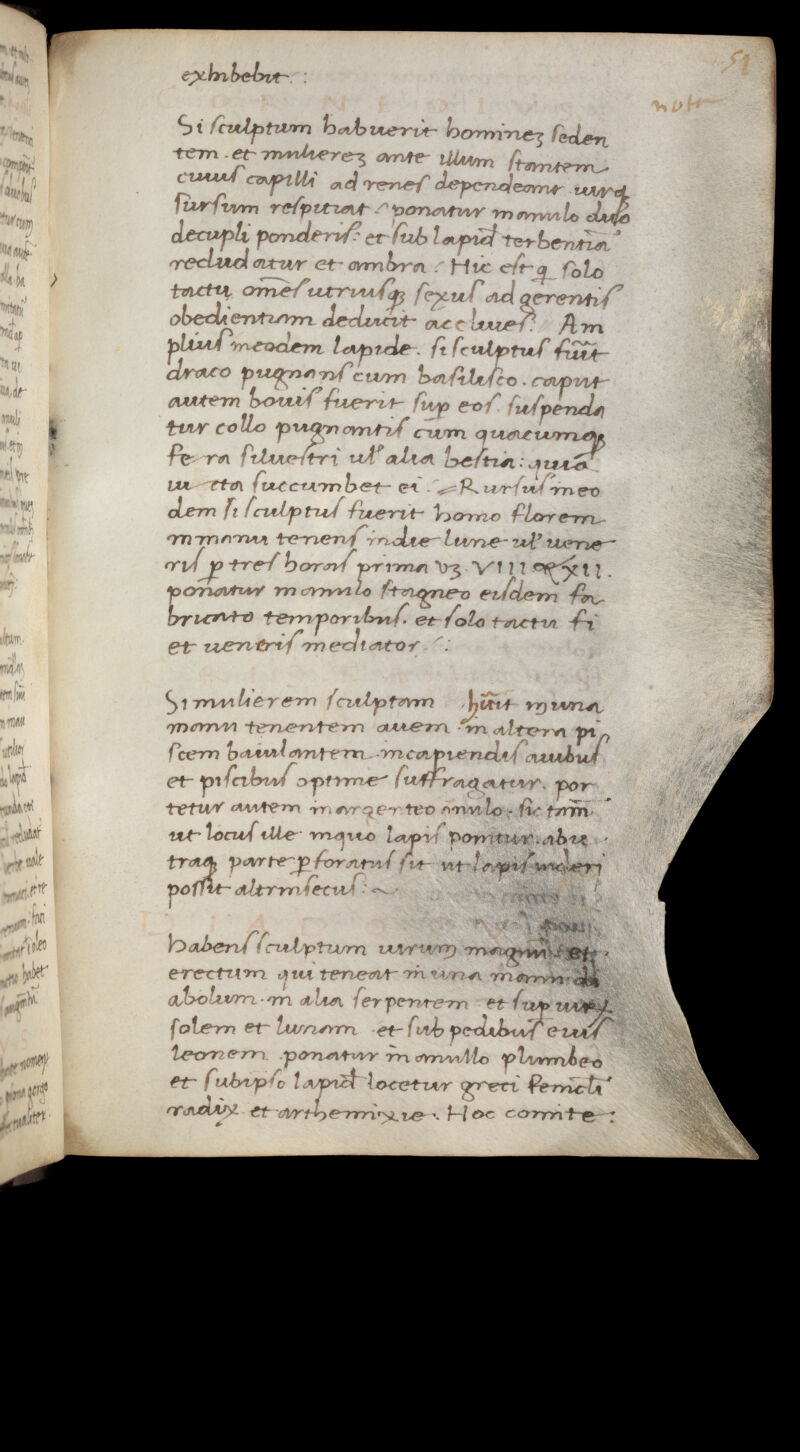 51
nota
exhibebit :
Si sculptum habuerit hominez seden
tem . et mulierez ante illum stantem
cuius capilli ad renes dependeant uirq3
sursum respitiat : ponatur in anulo duo
decupli ponderis : et sub lapid̄ terbentīa
recludatur et ambra : Hic est q̄ solo
tactu om̄es utriusq3 sexus ad gerentis
obedientiam deducit acclives : Am
plius in eodem lapide . si sculptus fuīt
draco pugnans cum basilisco . caput
autem bouis fuerit sup̄ eos . suspenda
tur collo pugnantis cūm quacumq3
fera siluestri ul' alia bestia : quia
uicta succumbet ei . Rursus in eo
dem si sculptus fuerit homo florem
in manu tenens in die lune ul' uene
ris p̄ tres horas prima v3 . VIII & XII .
ponatur in anulo stagneo eisdem fa
bricato temporibus . et solo tactu fi
et uentris mediator :
Si mulierem sculptam hūit in una
manu tenentem auem in altera pi
scem baiulantem in capiendis auibus
et piscibus optime suffragatur . por
tetur autem in argenteo anulo . sic tam̄
ut locus ille in quo lapis ponitur . ab u
traq3 parte p̄foratus sit ut lapis uideri
possit altrinsecus :
Habens sculptum uirum magnū et
erectum qui teneat in una manu di
abolum . in alia serpentem et sup̄ uirꝫ
solem et lunam et sub pedibus eius
leonem . ponatur in anullo plumbeo
et sub ipso lapid̄ locetur greci feniclī
radix et arthemixie . Hoc comite :